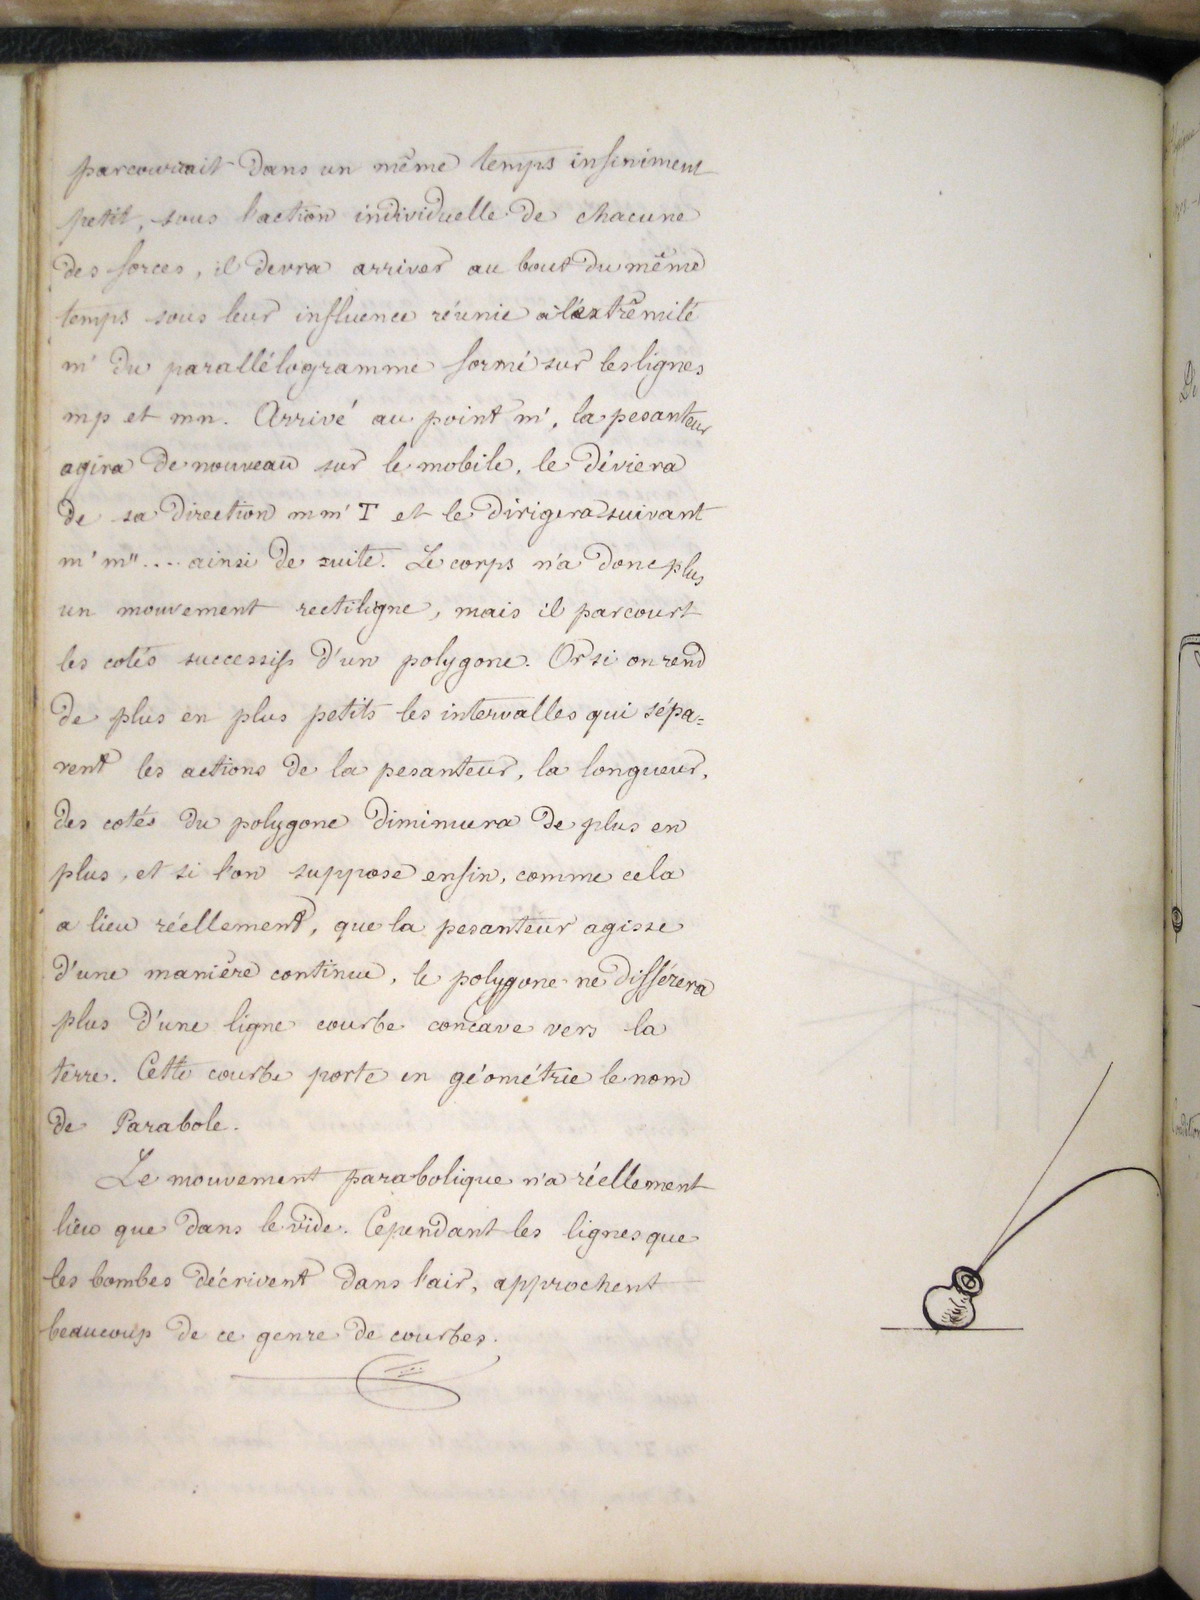 parcourrait dans un même temps infiniment
petit, sous l'action individuelle de chacune
des forces, il devra arriver au bout du même
temps sous leur influence réunie à l'extrêmité
m' du parallélogramme formé sur les lignes
mp et mn. Arrivé au point m', la pesanteur
agira de nouveau sur le mobile, le déviera
de sa direction mm' T et le dirigera suivant
m' m".... ainsi de suite. Le corps n'a donc plus
un mouvement rectiligne, mais il parcourt
les cotés successifs d'un polygone. Or si on rend
de plus en plus petits les intervalles qui sépa=
rent les actions de la pesanteur, la longueur,
des cotés du polygone diminuera de plus en
plus, et si l'on suppose enfin, comme cela
a lieu réellement, que la pesanteur agisse
d'une manière continue, le polygone ne différera
plus d'une ligne courbe concave vers la
terre. Cette courbe porte en géométrie le nom
de Parabole.
Le mouvement parabolique n'a réellement
lieu que dans le vide. Cependant les lignes que
les bombes décrivent dans l'air, approchent
beaucoup de ce genre de courbes.